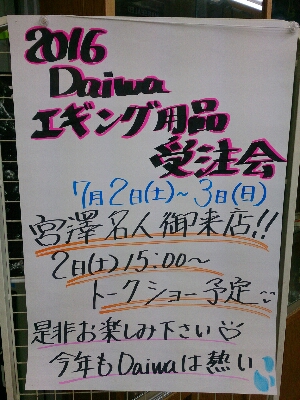 2016
Daiwa
エギング用品
受注会
7月2日(土)~3日(日)
宮澤名人御来店!!
2日(土)15:00~
トークショー予定
是非お楽しみ下さい
今年もDaiwaは熱い